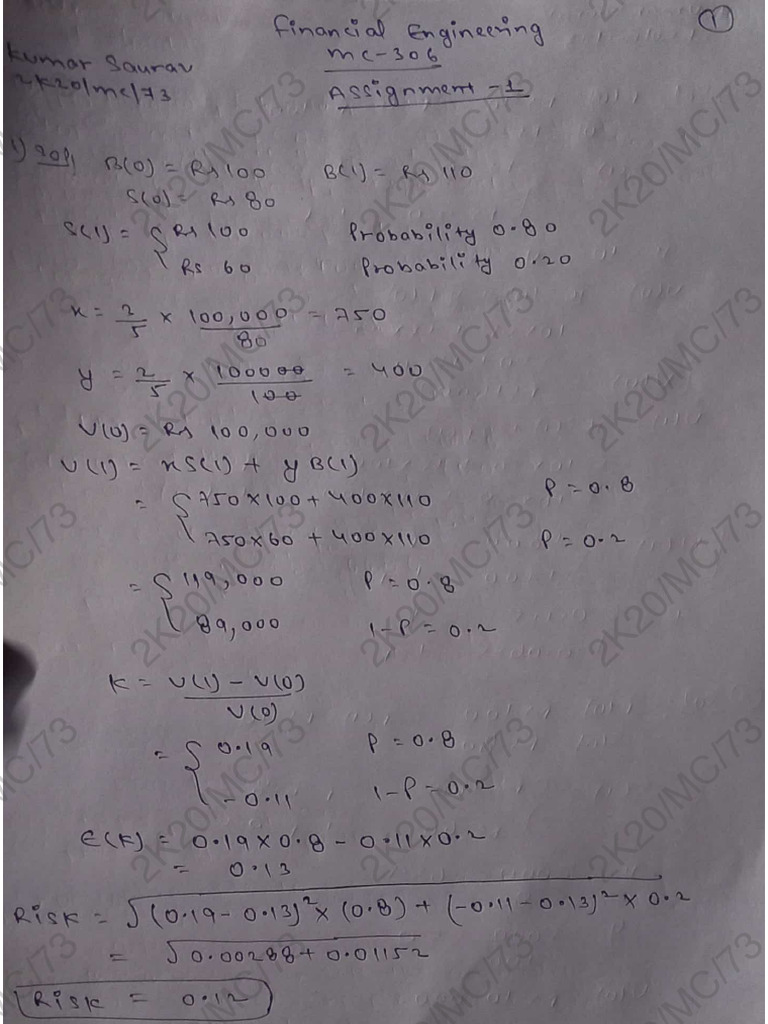 Financial Engineering
1
MC-306
Kumar Saurav
2K20/MC/73
Assignment - 1
1) Soln B(0) = Rs 100 B(1) = Rs 110
S(0) = Rs 80
S(1) = { Rs 100 Probability 0.80
Rs 60 Probability 0.20
x = 2/5 × 100,000/80 = 750
y = 2/5 × 100000/100 = 400
V(0) = Rs 100,000
V(1) = xS(1) + yB(1)
= { 750×100 + 400×110 P = 0.8
750×60 + 400×110 P = 0.2
= { 119,000 P = 0.8
89,000 1-P = 0.2
K = V(1) - V(0)
V(0)
= { 0.19 P = 0.8
-0.11 1-P = 0.2
E(K) = 0.19×0.8 - 0.11×0.2
= 0.13
Risk = √(0.19-0.13)²×(0.8) + (-0.11-0.13)²×0.2
= √0.00288+0.01152
Risk = 0.12
2K20/MC/73